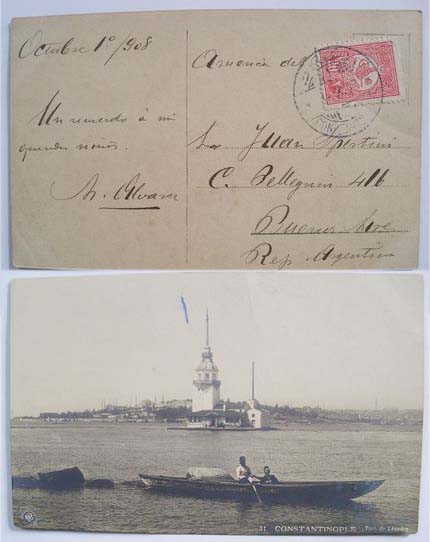 Octubre 1º/908
Un recuerdo á mi
querido
M. Alvarez
America del
Sor Juan
C. Pellegrini 416
Buenos Aires
Rep. Argentina
31 CONSTANTINOPLE Tour de Léandre